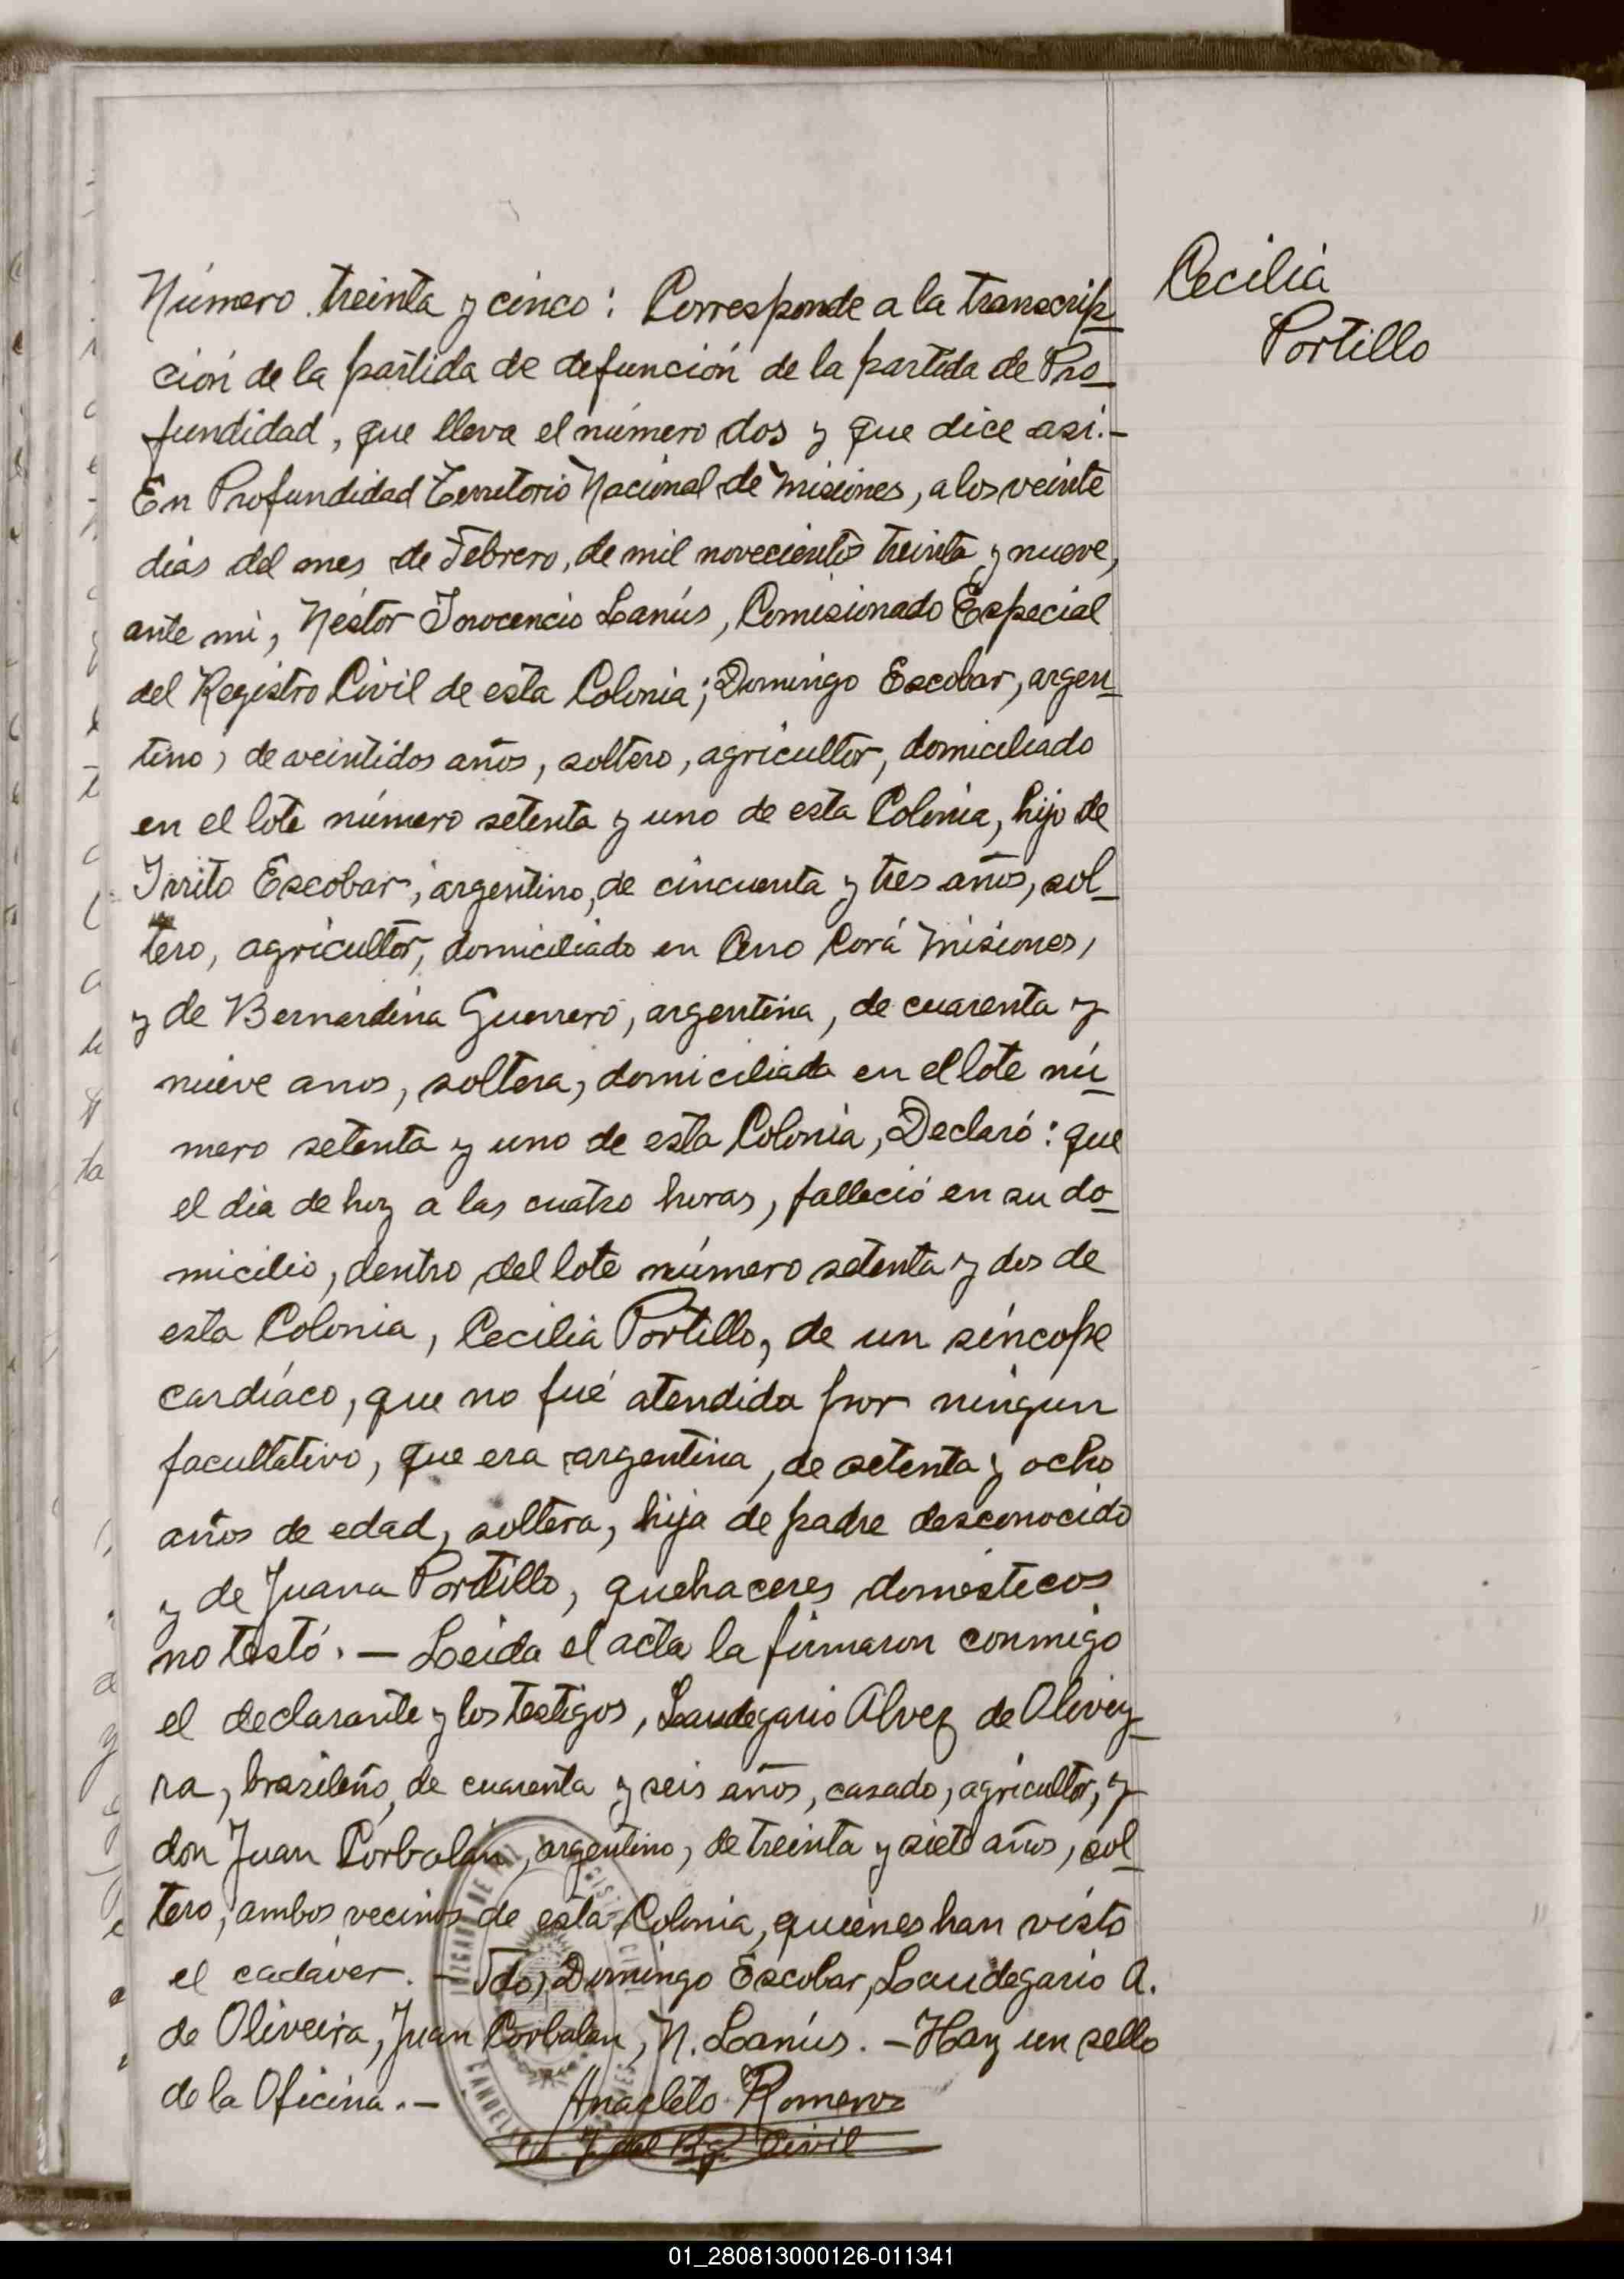 Número treinta y cinco: Corresponde a la transcrip
ción de la partida de defunción de la partida de Pro
fundidad, que lleva el número dos y que dice así.—
En Profundidad Territorio Nacional de Misiones, a los veinte
días del mes de Febrero, de mil novecientos treinta y nueve,
ante mi, Néstor Inocencio Lanús, Comisionado Especial
del Registro Civil de esta Colonia; Domingo Escobar, argen
tino, de veintidos años, soltero, agricultor, domiciliado
en el lote número setenta y uno de esta Colonia, hijo de
Irrito Escobar, argentino, de cincuenta y tres años, sol
tero, agricultor, domiciliado en Cerro Corá Misiones,
y de Bernardina Guerrero, argentina, de cuarenta y
nueve anos, soltera, domiciliada en el lote nú
mero setenta y uno de esta Colonia, Declaró: que
el día de hoy a las cuatro horas, falleció en su do
micilio, dentro del lote número setenta y dos de
esta Colonia, Cecilia Portillo, de un síncope
cardíaco, que no fué atendida por ningun
facultativo, que era argentina, de setenta y ocho
años de edad, soltera, hija de padre desconocido
y de Juana Portillo, quehaceres domésticos
no testó. — Leida el acta la firmaron conmigo
el declarante y los testigos, Laudegario Alvez de Olivey
ra, brasileño, de cuarenta y seis años, casado, agricultor, y
don Juan Corbalán, argentino, de treinta y siete años, sol
tero, ambos vecinos de esta Colonia, quienes han visto
el cadáver. — Fdo) Domingo Escobar, Laudegario A.
de Oliveira, Juan Corbalan, N. Lanús. — Hay un sello
de la Oficina. —
Anacleto Romero
del Rg. Civil
Cecilia
Portillo
JUZGADO DE PAZ
01_280813000126-011341